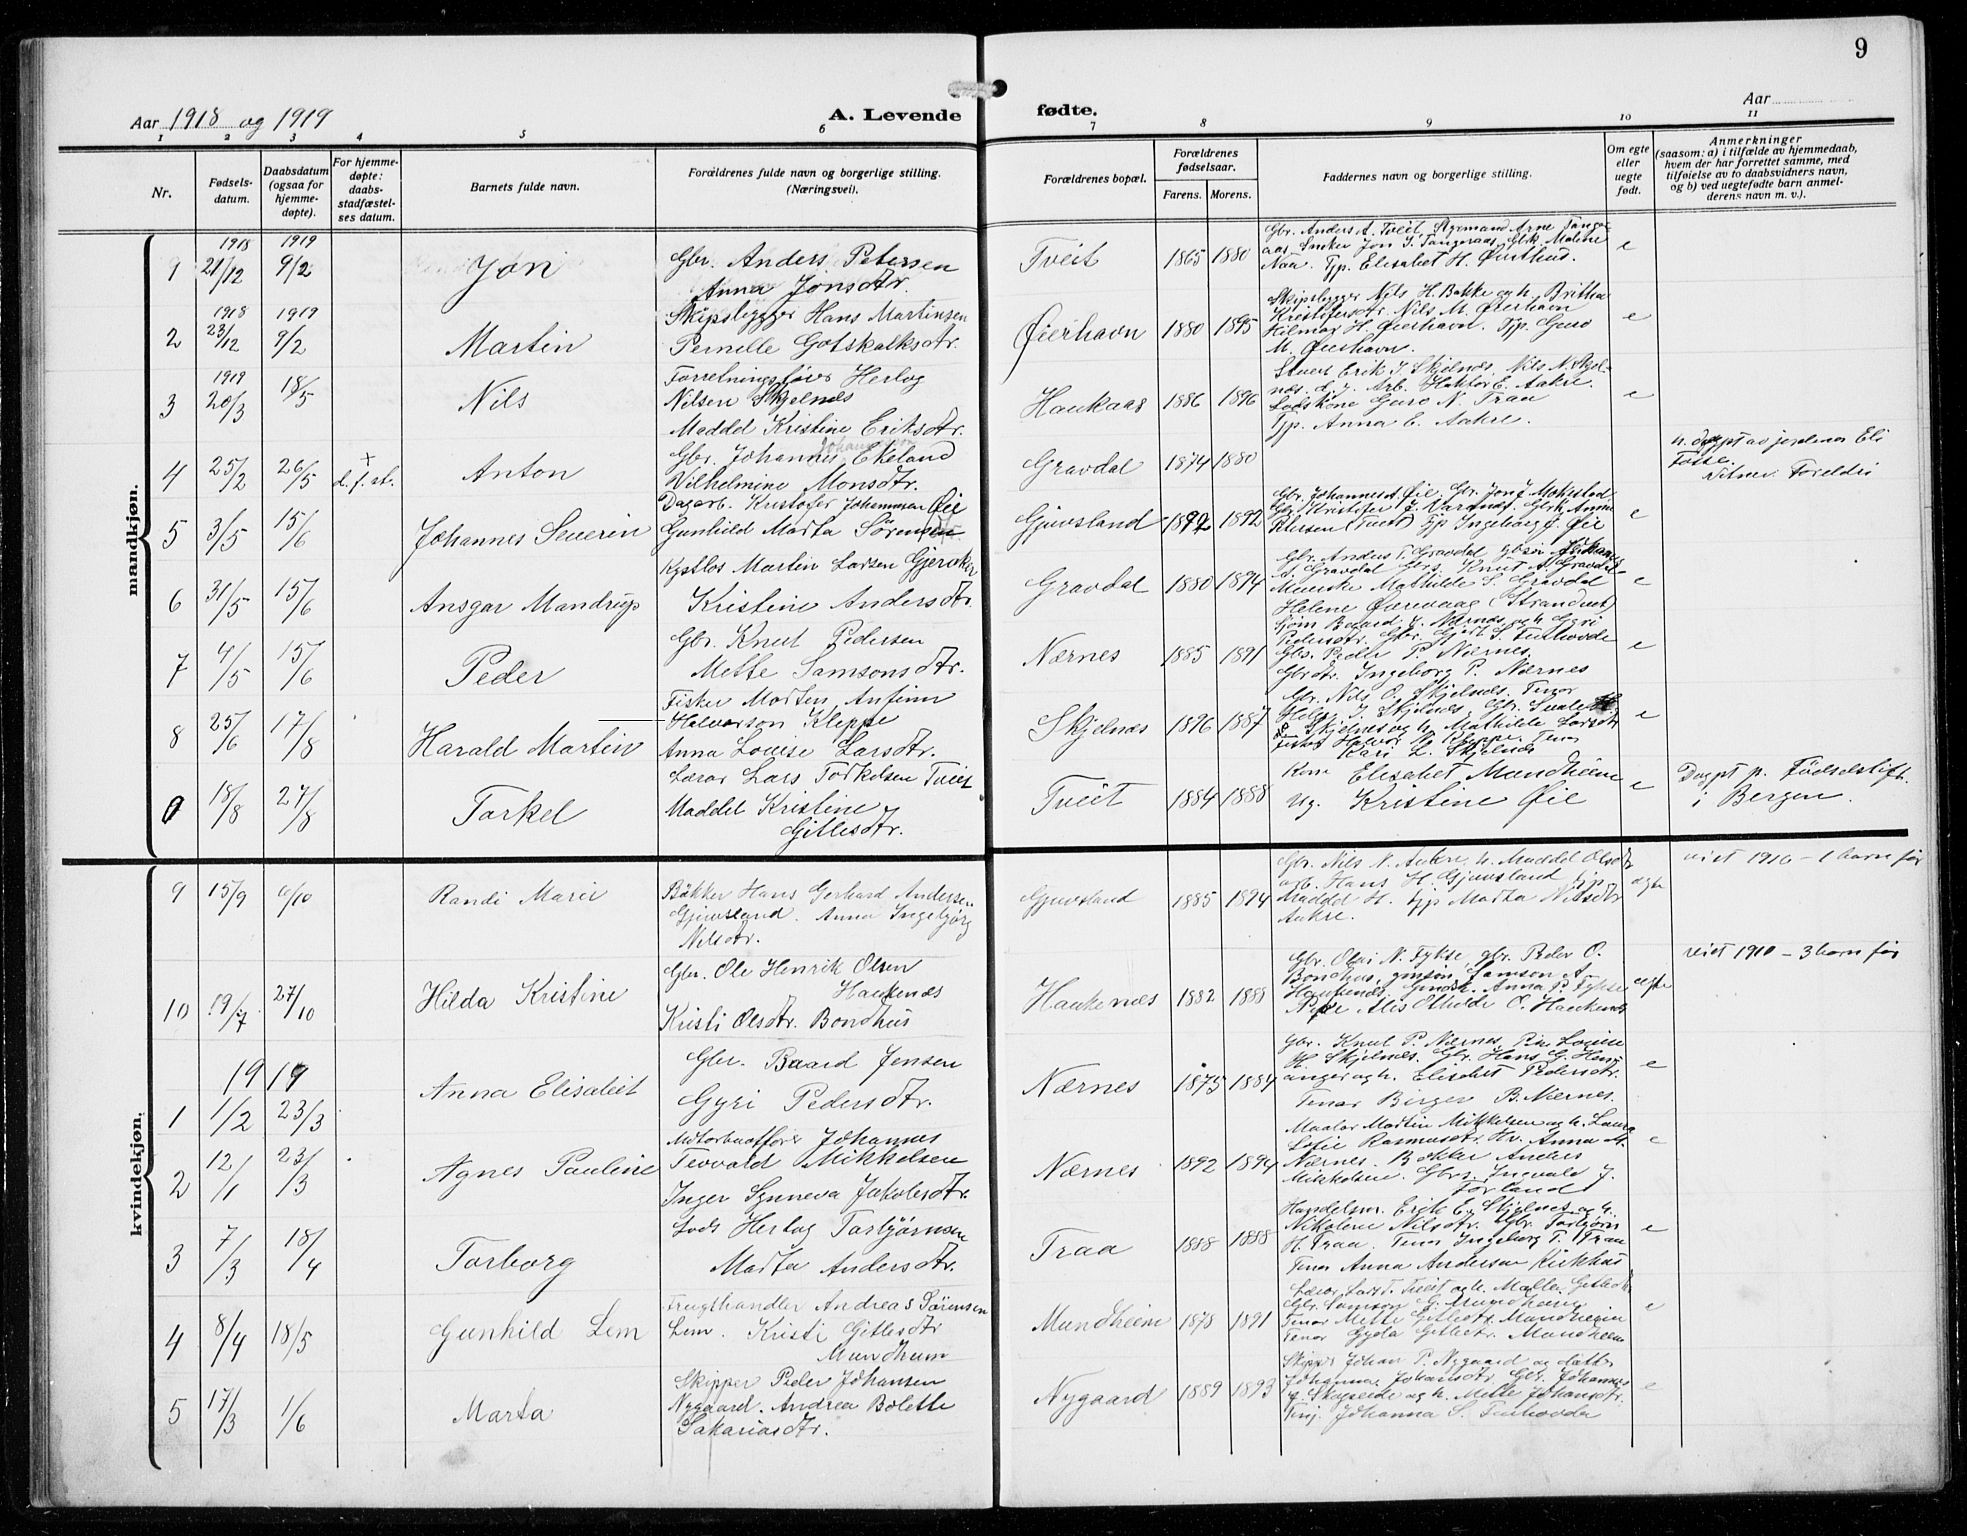 9
Aar 1918 og 1919
A. Levende
fødte.
Aar
1 2 3 4 5 6 7 8 9 10 11
Nr.
Fødsels-
datum.
Daabsdatum
(ogsaa for
hjemme-
døpte).
For hjemme-
døpte:
daabs-
stadfæstel-
ses datum.
Barnets fulde navn.
Forældrenes fulde navn og borgerlige stilling.
(Næringsvei).
Forældrenes bopæl.
Forældrenes
fødselsaar.
Farens. Morens.
Faddernes navn og borgerlige stilling.
Om egte
eller
uegte
født.
Anmerkninger
(saasom: a) i tilfælde av hjemmedaab,
hvem der har forrettet samme, med
tilføielse av to daabsvidners navn,
og b) ved uegtefødte barn anmel-
derens navn m. v.).
mandkjøn.
1918 1919
1 21/12 9/2 Jon
Gbr. Anders Petersen
Anna Jonsdtr.
Tveit 1865 1880
Gbr. Anders A. Tveit, Styrmand Arne
Jon J. Tangeraas, Gbk. Malene
Naa. Tjp. Elisabet H. Øierhus.
e
1918 1919
2 23/12 9/2 Martin
Skipsbygger Hans Martinsen
Pernille Gotskalksdtr.
Øierhavn 1880 1895
Skipsbygger Nils H. Bakke og h. Britha
Kristofersdtr. Nils M. Øierhavn
Hilmar H. Øierhavn. Tjp. Guro
M. Øierhavn.
e
1919
3 20/3 18/5 Nils
Forretningsfører Herlog
Nilsen Skjelnes
Maddel Kristine Eriksdtr.
Haukaas 1886 1896
Erik J. Skjelnes, Nils N. Skjel-
næs d. y. Arb. Haktor E. Aakre.
Lodskone Guro N. Traa
Tjp. Anna E. Aakre.
e
4 25/2 26/5 + d. f. st. Anton
Gbr. Johannes Ekeland
Vilhelmine Monsdtr.
Gravdal 1874 1880
n. døpt av jordmor Eli
Vitner: Foreldre
5 3/5 15/6 Johannes Severin
Dagarb. Kristofer Johannesen Øie
Gunhild Marta Sørensen
Gjuvsland 1892 1892
Gbr. Johannes Øie, Gbr. Jon J. Mokestad
Gbr. Kristofer J. Varanes. Gbrk. Anna
Petersen (Tveit) Tjp Ingeborg J. Øie
e
6 31/5 15/6 Ansgar Mandrup
Kystlos Martin Larsen Gjeraker
Kristine Andersdtr.
Gravdal 1880 1894
Gbr. Anders T. Gravdal
A. Gravdal Gbrs. Knut A. Gravdal
Mathilde S. Gravdal
Helene Øierevaag (Strandvet)
e
7 4/5 15/6 Peder
Gbr. Knut Pedersen
Mette Samsonsdtr.
Nærnes 1885 1891
Baard J. Nærnes og h. Gyri
Pedersdtr. Gbr. Gjert S. Tuehovde
Gbs. Peder P. Nærnes.
Gbrdtr. Ingeborg P. Nærnes
e
8 25/6 17/8 Harald Martin
Fisker Morten Anfinn
Halvorson Kleppe
Anna Lovise Larsdtr.
Skjelnes 1896 1887
Gbr. Nils O. Skjelnes. Tenor
J. Skjelnes, Gbr.
Skjelnes og h. Mathilde Larsdtr
Fisker Halvor M. Kleppe. Tenor
Kari L. Skjelnes
e
18/8 27/8 Torkel
Lærar Lars Torkelsen Tveit
Maddel Kristine
Gitlesdtr.
Tveit 1884 1888
Kone Elisabet Mundheim
Ug. Kristine Øie
e
Døpt p. Fødselstift.
i Bergen.
kvindekjøn.
9 15/9 6/10 Randi Marie
Bakker Hans Gerhard Andersen
Gjuvsland. Anna Ingebjørg
Nilsdtr.
Gjuvsland 1885 1894
Gbr. Nils N. Aakre, h. Maddel Olsdtr
arb. Hans H. Gjuvsland tjp
Maddel H. tjp Marta Nilsdtr
Aakre.
egte
viet 1916 - 1 barn før
10 19/7 27/10 Hilda Kristine
Gbr. Ole Henrik Olsen
Haukenæs
Kristi Olsdtr. Bondhus
Haukenæs 1882 1888
Gbr. Olai N. Fykse, gbr. Peder O.
Bondhus, Samson A
Haukenæs, Anna P. Fykse
O. Haukenæs
egte
viet 1910 - 3 barn før
1919
1 1/2 23/3 Anna Elisabet
Gbr. Baard Jensen
Gyri Pedersdtr.
Nærnes 1875 1884
Gbr. Knut P. Nærnes, Lovise
H. Skjelnæs. Gbr. Hans G. Hard-
anger og h. Elisabet Pedersdtr.
Tenor Birger B. Nærnes.
e
2 12/1 23/3 Agnes Pauline
Johannes
Teovald Mikkelsen
Inger Synneva Jakobsdtr.
Nærnes 1892 1894
Maalar Martin Mikkelsen og h. Laura
Sofie Rasmusdtr. Hv. Anna M.
Nærnes. Bakker Anders
Mikkelsen. Gbrs. Ingvald J.
Førland
e
3 7/3 18/4 Torborg
Lods Herlog Torbjørnsen
Marta Andersdtr.
Traa 1888 1888
Handelsm. Erik E. Skjelnes og h.
Nikoline Nilsdtr. Gbr. Torbjørn
H. Traa. Tenor Ingeborg T. Traa
Tenor Anna Andersen Kirkhus
e
4 8/4 18/5 Gunhild Lem
Frugthandler Andreas Sørensen
Lem. Kristi Gitlesdtr
Mundheim
Mundheim 1878 1891
Lærar Lars T. Tveit og h. Malle. Gitlesdtr
Gbr. Samson G. Mundheim
Tenor Mette Gitlesdtr. Mundheim
Tenor Gyda Gitlesdtr. Mundheim
e
5 17/3 1/6 Marta
Skipper Peder Johansen
Nygaard. Andrea Bolette
Sakariasdtr.
Nygaard 1889 1893
Skipper Johan P. Nygaard og datter
Johanna Johansdtr. Gbr. Johannes
Skogseide og h. Mette Johansdtr.
Johanna S. Tuehovde
e